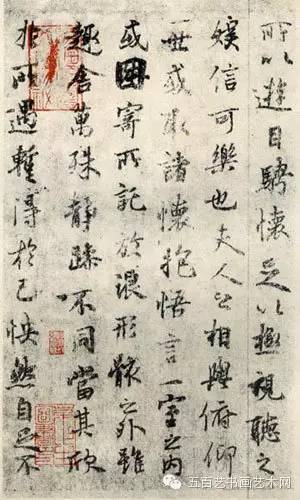 所以遊目騁懷足以極視聽之
娛信可樂也夫人之相與俯仰
一世或取諸懷抱悟言一室之內
或因寄所託放浪形骸之外雖
趣舍萬殊靜躁不同當其欣
於所遇暫得於己怏然自足不
五百艺书画艺术网